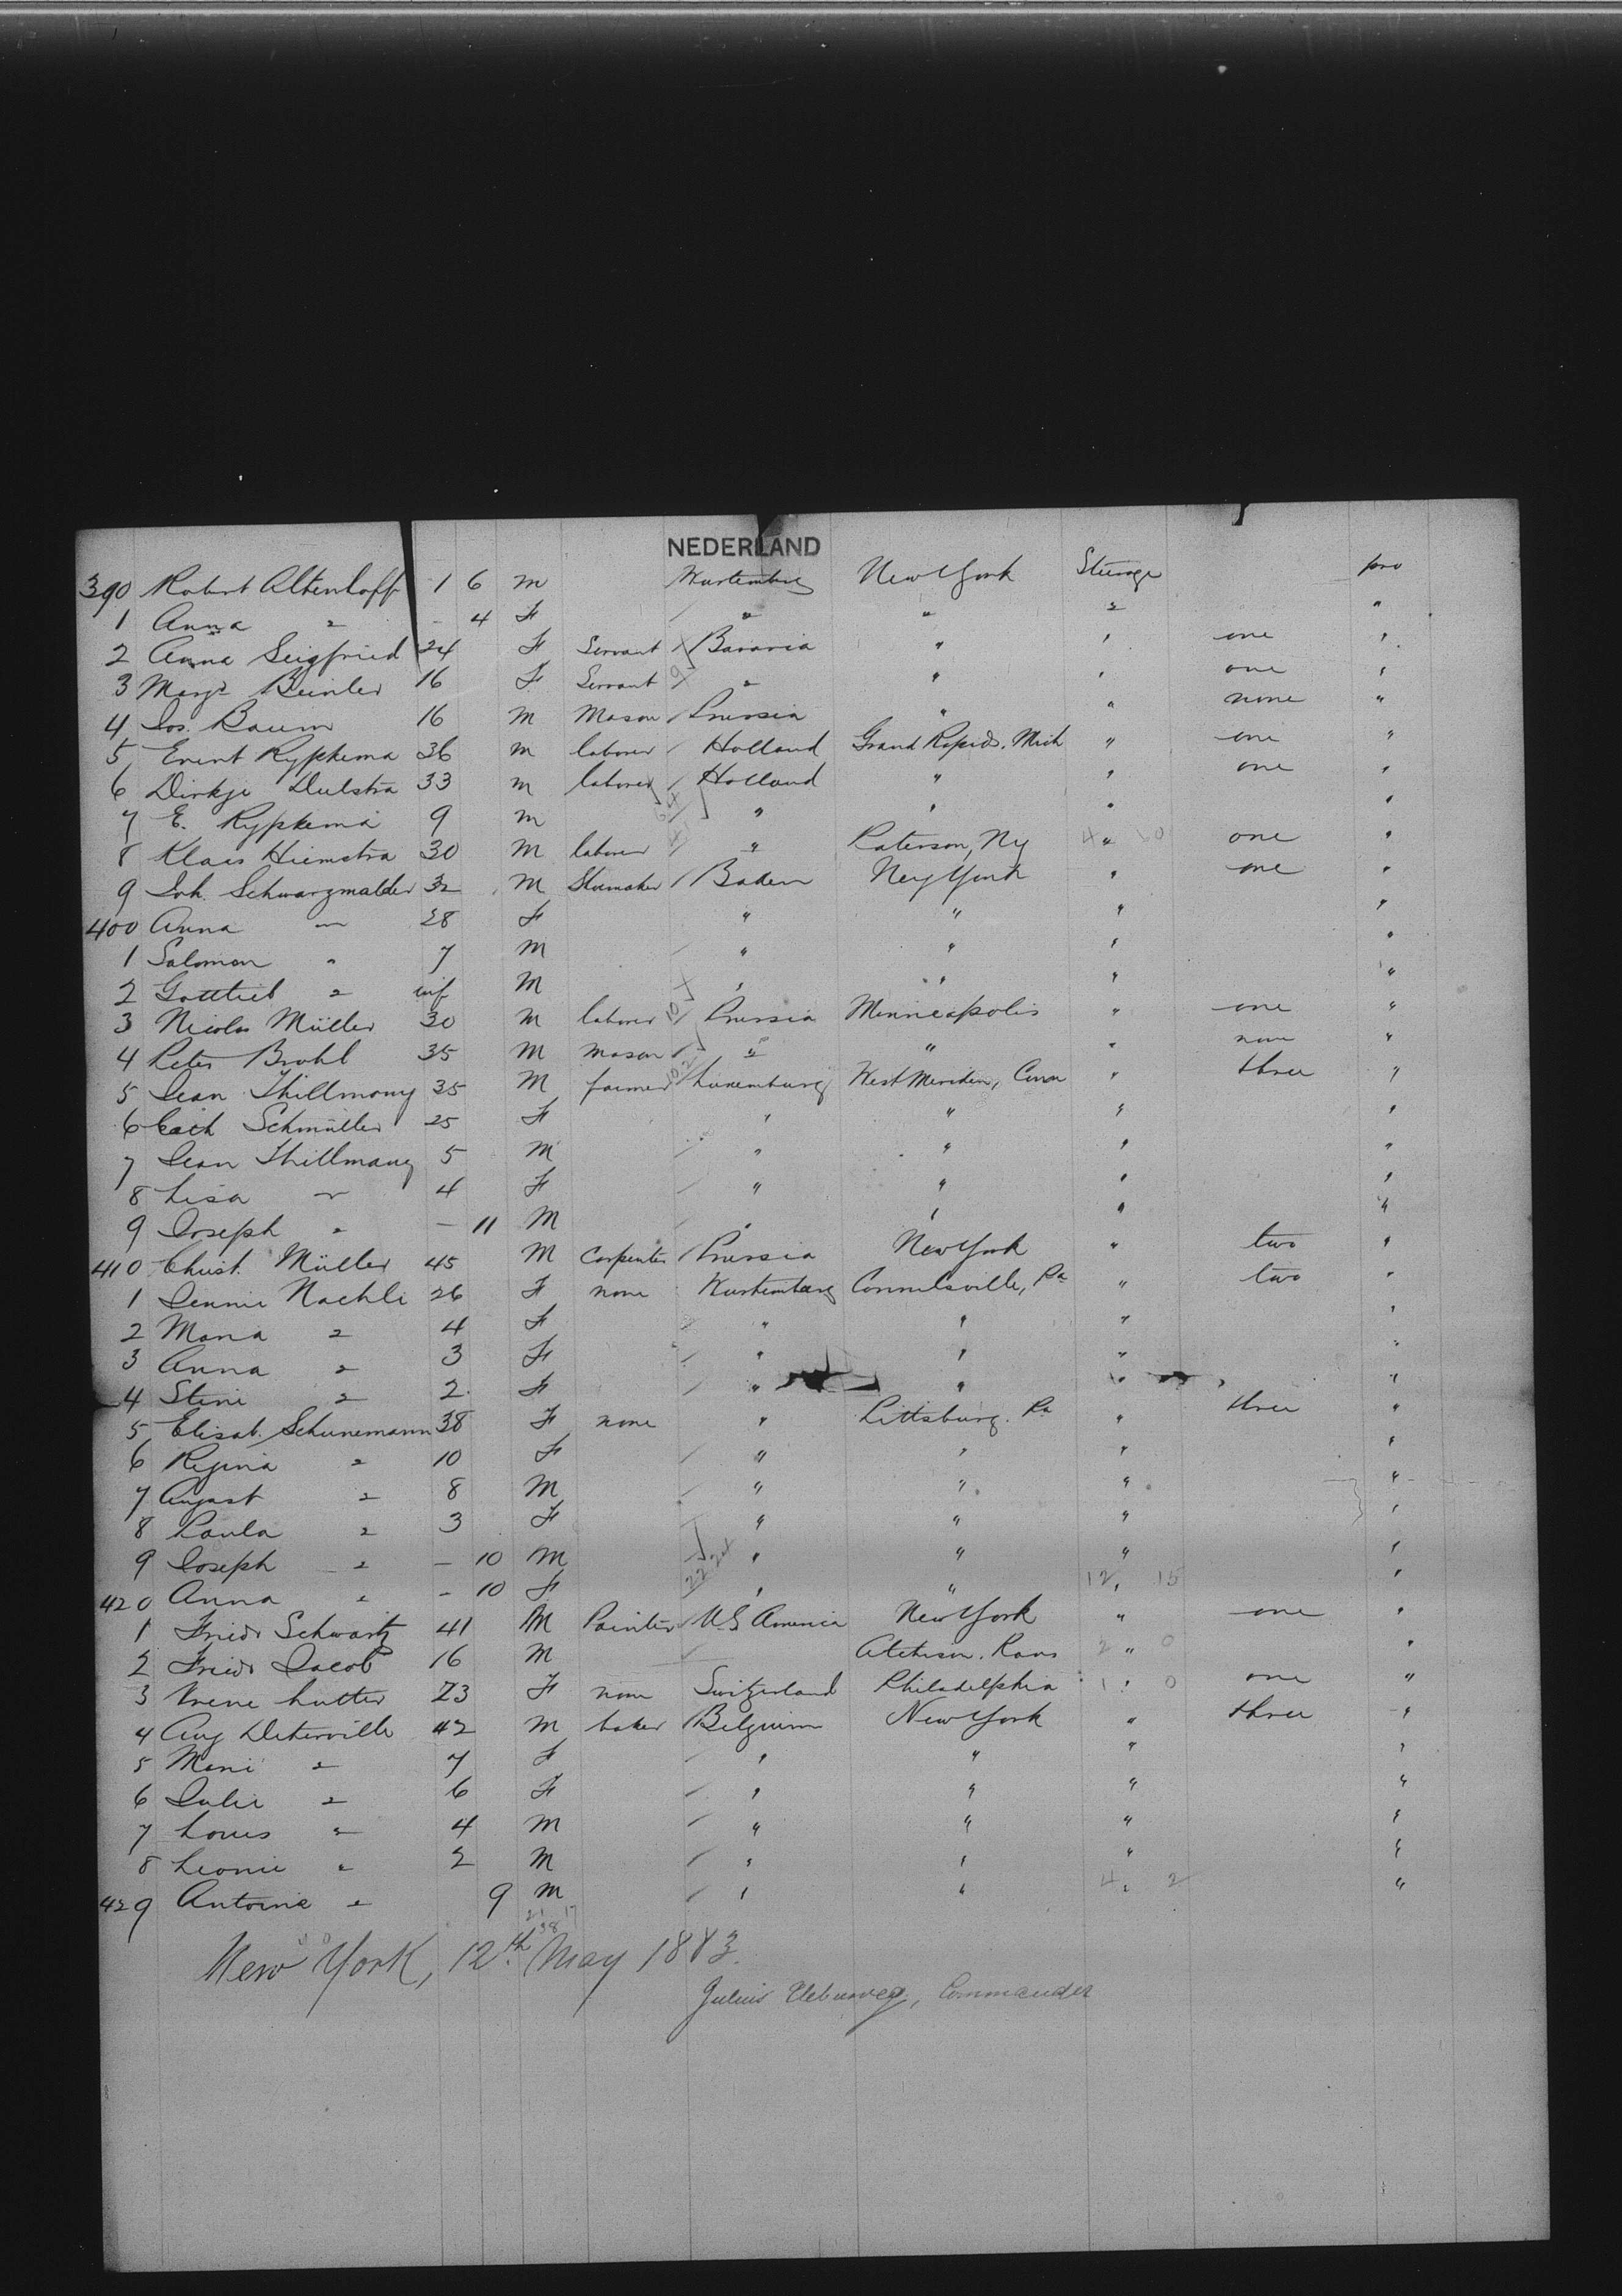 NEDERLAND
390 Robert Altenhoff 1 6 M Wurtemberg New York Steerage pro
1 Anna " - 4 F " " " "
2 Anna Seigfried 24 F Servant Bavaria " " one "
3 Margr Beinler 16 F Servant " " " one "
4 Jos. Baum 16 M Mason Prussia " " none "
5 Evert Rypkema 36 M laborer Holland Grand Rapids. Mich " one "
6 Dirkje Dulstra 33 M laborer Holland " " one "
7 E. Rypkema 9 M " " " "
8 Klaas Hiemstra 30 M laborer " Paterson, Ny " one "
9 Joh. Schwarzmalder 32 M Shomaker Baden New York " one "
400 Anna " 28 F " " " "
1 Salomon " 7 M " " " "
2 Gottlieb " inf M " " " "
3 Nicolas Müller 30 M laborer Prussia Minneapolis " one "
4 Peter Brohl 35 M Mason " " " none "
5 Jean Thillmany 35 M farmer Luxemburg West Meriden, Conn " three "
6 Cath Schmüller 25 F " " " "
7 Jean Thillmany 5 M " " " "
8 Lisa " 4 F " " " "
9 Joseph " - 11 M " " " "
410 Christ. Müller 45 M Carpenter Prussia New York " two "
1 Jennie Nachli 26 F none Wurtemberg Connelsville, Pa " two "
2 Maria " 4 F " " " "
3 Anna " 3 F " " " "
4 Stine " 2 F " " " "
5 Elisab. Schunemann 38 F none " Pittsburg. Pa " three "
6 Regina " 10 F " " " "
7 August " 8 M " " " "
8 Paula " 3 F " " " "
9 Joseph " - 10 M " " " "
420 Anna " - 10 F " " 12 " 15 "
1 Friedr Schwartz 41 M Painter U.S. America New York " one "
2 Friedr Jacob 16 M Atchison. Kans 2 " 0 "
3 Irene Lutter 23 F none Switzerland Philadelphia 1 " 0 one "
4 Aug Deterville 42 M baker Belgium New York " three "
5 Marie " 7 F " " " "
6 Julie " 6 F " " " "
7 Louis " 4 M " " " "
8 Leonie " 2 M " " " "
429 Antoine " 9 M " " 4 " 2 "
New York, 12th May 1883.
Julius Commander